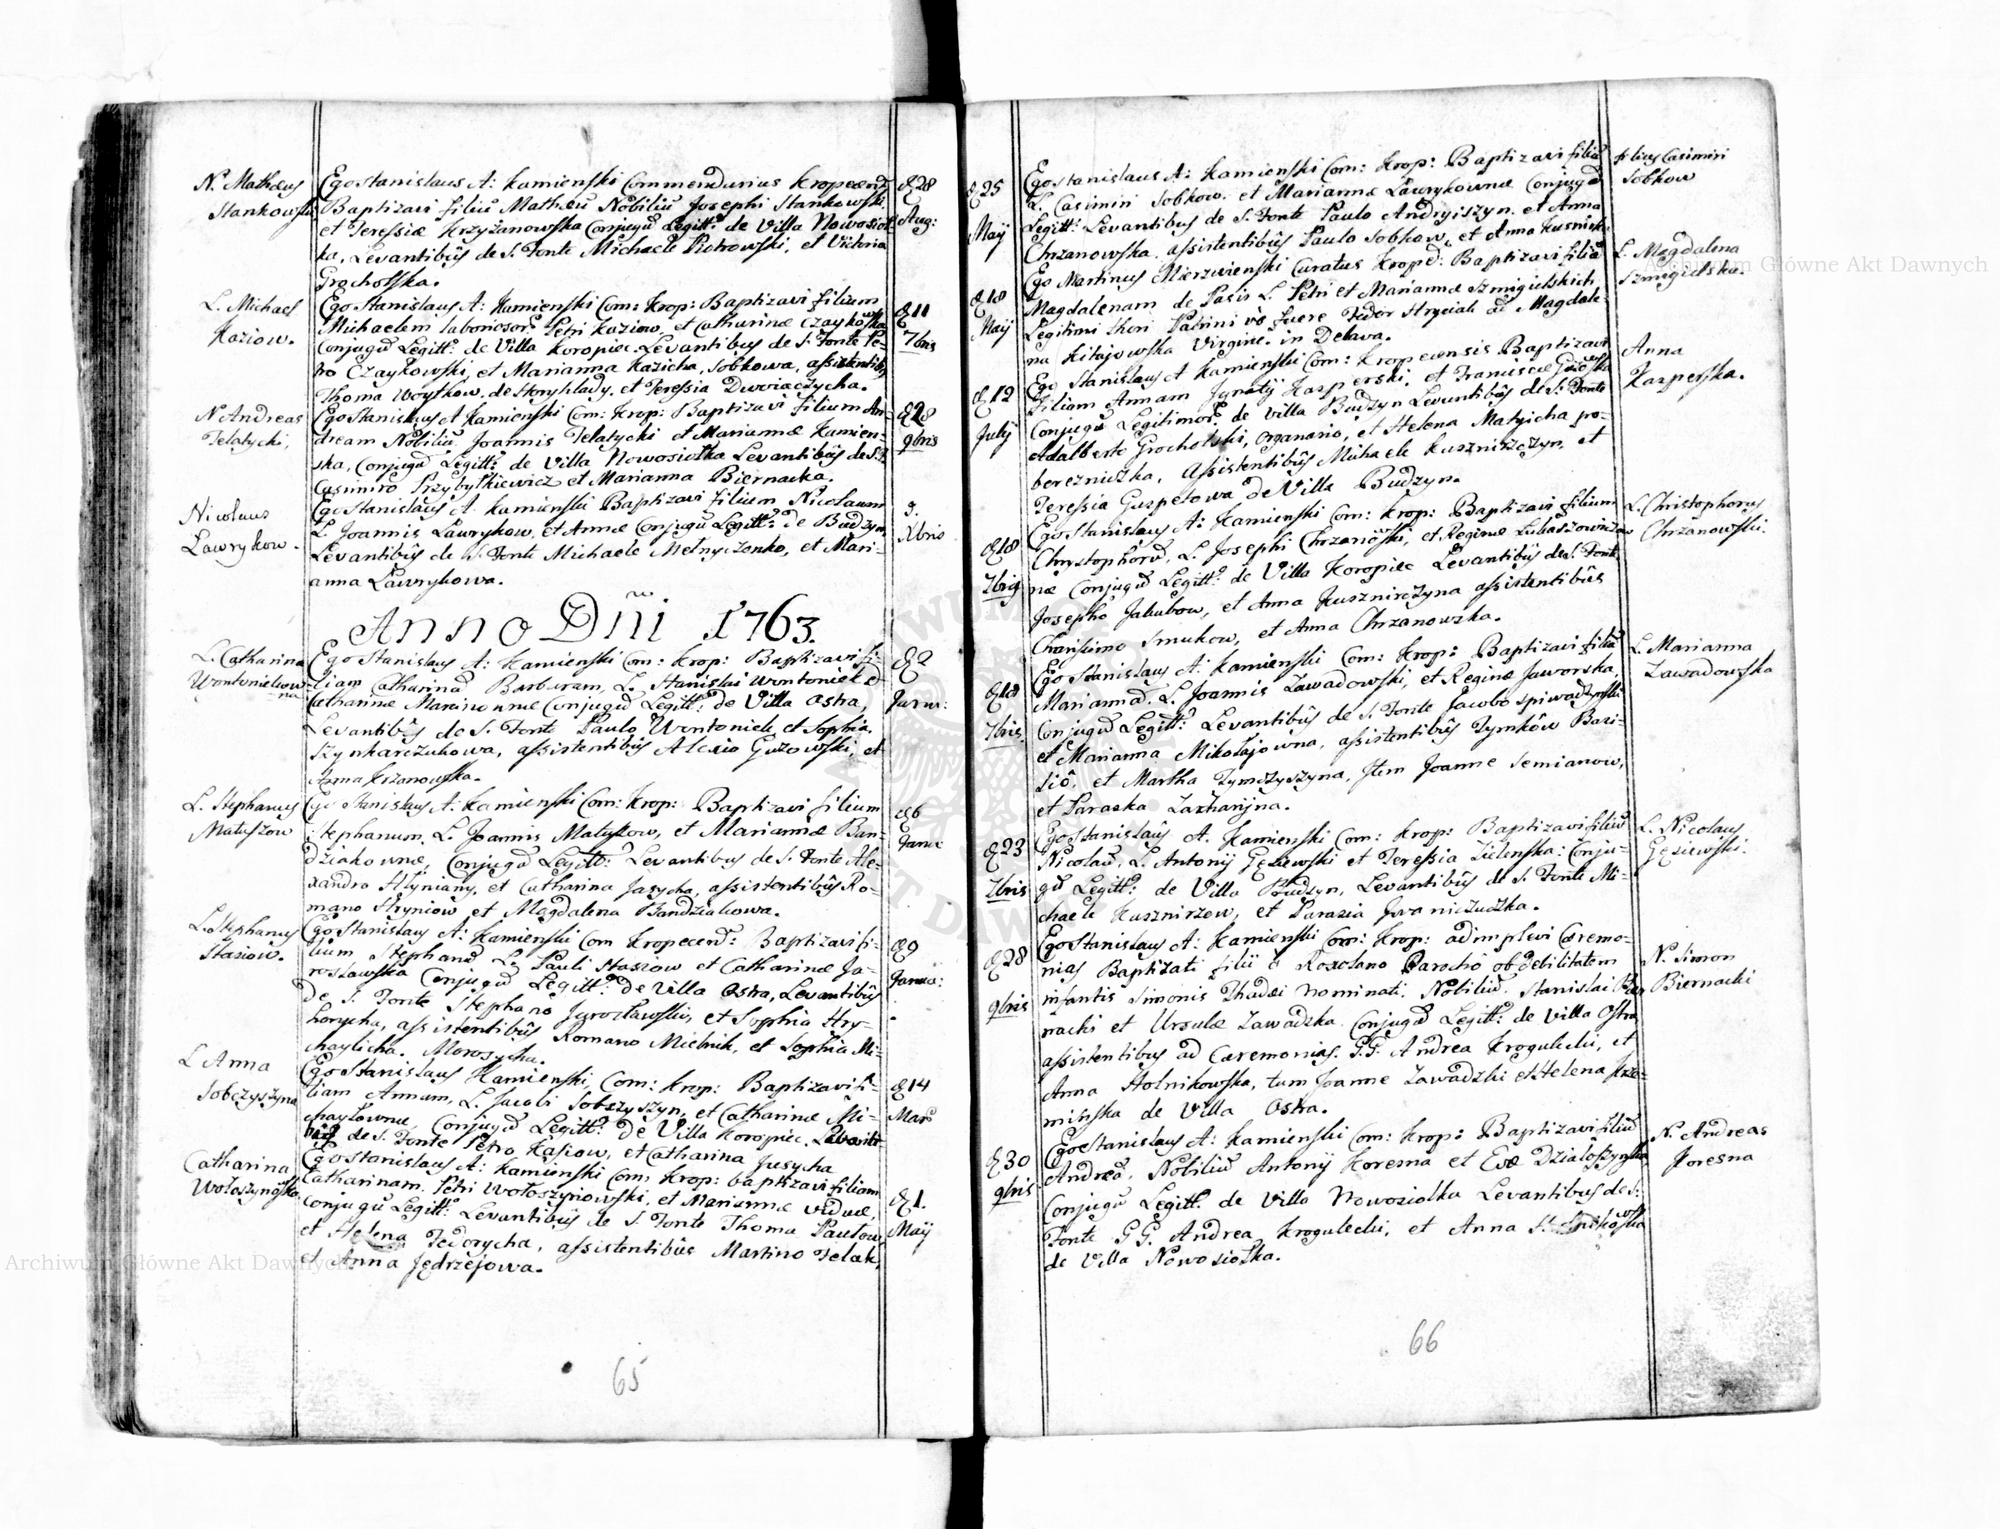 N. Mathæus
Stankowski
Ego Stanislaus A: Kamienski Commendarius Kropecens
Baptizavi filiū Mathæū Nobiliū Josephi Stankowski
et Teressiæ Krzyżanowska Conjugū Legitt: de Villa Nowosioł-
ka, Levantibūs de S. Fonte Michaele Piotrowski, et Victoria
Grocholska.
D 28
Aug:
L. Michael
Koziow.
Ego Stanislaus A: Kamienski Com: Krop: Baptizavi filium
Michaelem laboriosor: Petri Koziow, et Catharinæ Czaykowska
Conjugū Legitt: de Villa Koropiec Levantibus de S. Fonte Pe-
tro Czaykowski, et Marianna Kazicha, Sobkowa, assistentibūs
Thoma Woytkow, de Horyhlady, et Teressia Dworiaczycha.
D 11
7bris
N. Andreas
Telatycki,
Ego Stanislaus A Kamienski Com: Krop: Baptizavi filium An-
dream Nobiliū Joannis Telatycki et Mariannæ Kamien-
ska, Conjugū Legitt: de Villa Nowosiołka Levantibūs de S. F.
Casimiro Przybytkiewicz et Marianna Biernacka.
D 28
9bris
Nicolaus
Lawrykow.
Ego Stanislaus A. Kamienski Baptizavi filium Nicolaum
L. Joannis Lawrykow, et Annæ Conjugū Legitt: de Budzyn
Levantibūs de S. Fonte Michaele Melnyczenko, et Mari-
anna Lawrykowa.
3.
Xbris
Anno Dñi 1763.
L. Catharina
Wontoniekow
na
Ego Stanislaus A: Kamienski Com: Krop: Baptizavi fi-
liam Catharinā Barbaram, L. Stanislai Wontoniek et
Catharinæ Conjugū Legitt: de Villa Ostra,
Levantibūs de S. Fonte Paulo Wontoniek et Sophia
Szynkarczukowa, assistentibūs Alexio Guzowski, et
Anna Krzanowska.
D 2
Janu:
L. Stephanus
Matyszow
Ego Stanislaus A: Kamienski Com: Krop: Baptizavi filium
Stephanum, L. Joannis Matyszow, et Mariannæ Ban-
dziakownæ, Conjugū Legitt: Levantibus de S. Fonte Ale-
xandro Hłyniany, et Catharina Jasycha, assistentibūs Ro-
mano Hryniow et Magdalena Bandziakowa.
D 6
Janu
L. Stephanus
Stasiow.
Ego Stanislaus A: Kamienski Com Kropecens: Baptizavi fi-
lium Stephanū L. Pauli Stasiow et Catharinæ Ja-
rosławska Conjugū Legitt: de Villa Ostra, Levantibūs
de S. Fonte Stephano Jarosławski, et Sophia Hry-
horycha, assistentibūs Romano Mielnik, et Sophia Mi-
chaylicha. Morosycha.
D 9
Janua:
L Anna
Sobczyszyna
Ego Stanislaus Kamienski Com: Krop: Baptizavi fi-
liam Annam, L. Jacobi Sobczyszyn, et Catharinæ Mi-
chayłownæ, Conjugū Legitt: de Villa Koropiec. Levanti-
bus de S. Fonte Petro Kasiow, et Catharina Jusycha
D 14
Mar
Catharina
Wołoszynowska
Ego Stanislaus A: Kamienski Com: Krop: baptizavi filiam
Catharinam. Petri Wołoszynowski, et Mariannæ viduæ,
Conjugū Legitt: Levantibūs de S. Fonte Thoma Paułow
et Helena Fedorycha, assistentibūs Martino Telak,
et Anna Jędrzejowa.
D 1.
Maij
65
D 25
Maij
Ego Stanislaus A: Kamienski Com: Krop: Baptizavi filiū
L. Casimiri Sobkow. et Mariannæ Lawrykownæ Conjugū
Legitt: Levantibus de S. Fonte Paulo Andryiszyn. et Anna
Chrzanowska. assistentibūs Paulo Sobkow, et Anna
filius Casimiri
Sobkow
D 18
Maij
Ego Martinus Mierzwienski Curatus Koroped: Baptizavi filiā
Magdalenam de Pasis L. Petri et Mariannæ Szmigielskich
Legitimi thori Patrini vō fuere Fedor Hryciah ac Magdale-
na Kitajowska Virgine. in Delawa.
L. Magdalena
Szmigielska.
D 19
July
Ego Stanislaus A Kamienski Com: Kropecensis Baptizavi
filiam Annam Ignatij Kasperski, et Franciscæ
Conjugū Legitimor: de Villa Budzyn Levantibūs de S. Fonte
Adalberto Grocholski, organario, et Helena Matyicha po-
bereznickka, Assistentibūs Michaele Kusznirczyn, et
Teressia Gaspelowa de Villa Budzyn.
Anna
Kasperska.
D 18
7bris
Ego Stanislaus A: Kamienski Com: Krop: Baptizavi filium
Chrystophorū, L. Josephi Chrzanowski, et Reginæ
næ Conjugū Legitt: de Villa Koropiec Levantibūs de S. Fonte
Josepho Jakubow, et Anna Kusznirczyna assistentibūs
Charisimo Smukow, et Anna Chrzanowska.
L. Christophorus
Chrzanowski.
D 18
7bris
Ego Stanislaus A: Kamienski Com: Krop: Baptizavi filiā
Mariannā. L. Joannis Zawadowski, et Reginæ Jaworska,
Conjugū Legitt: Levantibūs de S. Fonte Jacobo
et Marianna Mikołajowna, assistentibūs Tymkow Basi-
liō, et Martha Tymczyszyna, Item Joanne Semianow,
et Paraska Zacharijna.
L. Marianna
Zawadowska
D 23
7bris
Ego Stanislaūs A. Kamienski Com: Krop: Baptizavi filiū
Nicolaū, L. Antonij Gęsiewski et Teressia Zielenska: Conju-
gū Legitt: de Villa Budzyn, Levantibūs de S. Fonte Mi-
chaele Kusznirzew, et Parasia Iwaniczuczka.
L. Nicolaus
Gęsiewski.
D 28
9bris
Ego Stanislaus A: Kamienski Com: Krop: adimplevi Cæremo-
nias Baptizati filii a Roxolano Parocho ob debilitatem
infantis Simonis Thadæi nominati. Nobiliū. Stanislai Bier
nacki et Ursulæ Zawadzka Conjugū Legitt: de Villa Ostra
assistentibus ad Cæremonias. G.G. Andrea Krogulecki, et
Anna Stolnikowska, tum Joanne Zawadzki et Helena Krze-
minska de Villa Ostra.
N. Simon
Biernacki
D 30
9bris
Ego Stanislaus A: Kamienski Com: Krop: Baptizavi filiū
Andreā, Nobiliū Antonij Koresna et Evæ Działoszynska
Conjugū Legitt: de Villa Nowosiolka Levantibus de S:
Fonte G.G. Andrea Krogulecki, et Anna
de Villa Nowosiołka.
N. Andreas
Koresna
66
Archiwum Główne Akt Dawnych
Archiwum Główne Akt Dawnych